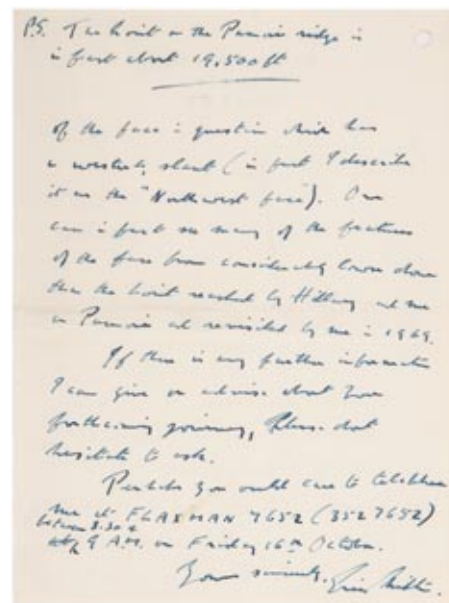 P.S. The point on the Pumori ridge is
in fact about 19,500 ft
of the face in question which has
a westerly slant (in fact I describe
it as the "Northwest face). One
can in fact see many of the features
of the face from considerably lower down
than the point reached by Hillary and me
on Pumori and revisited by me in 1969.
If there is any further information
I can give or advise about your
forthcoming journey, please don't
hesitate to ask.
Perhaps you would care to telephone
me at FLAXMAN 7652 (352 7652)
between 8.30 &
9 A.M. on Friday 16th October.
Yours sincerely, Eric Shipton